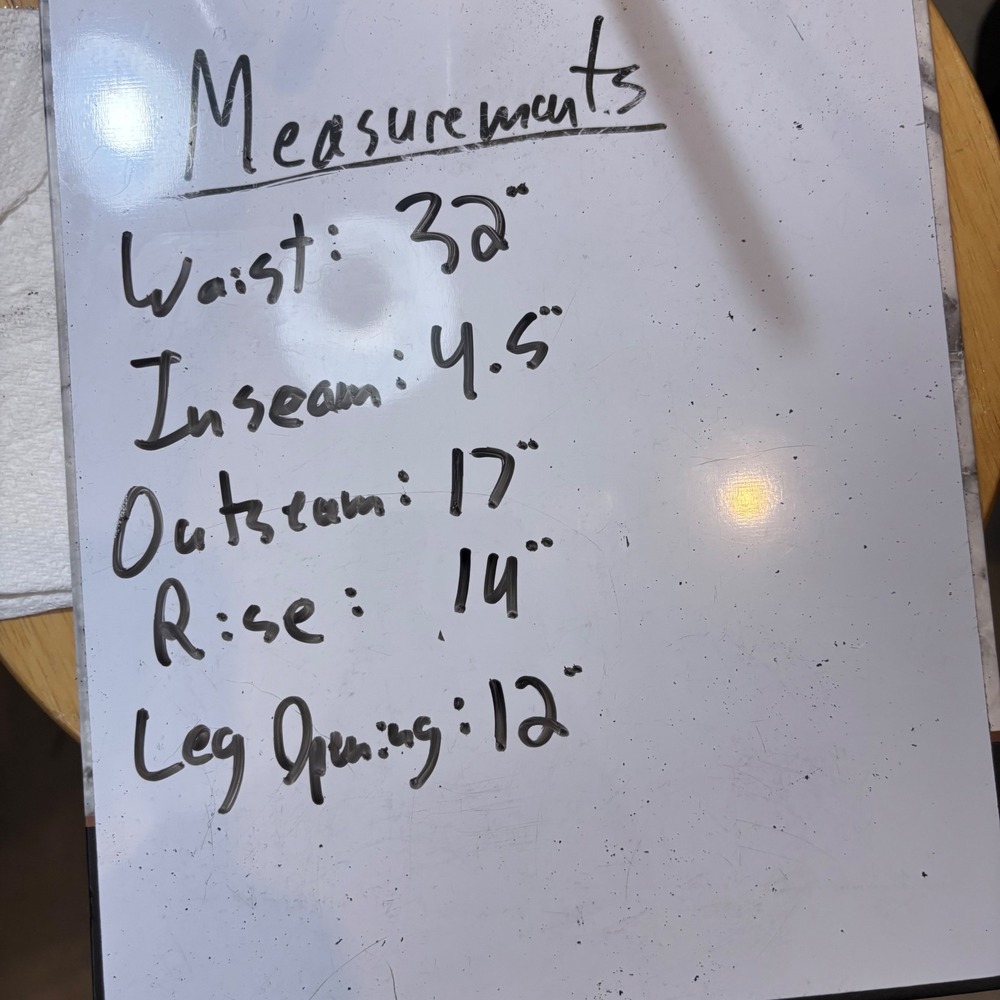 Measurements
Waist: 32"
Inseam: 4.5"
Outseam: 17"
Rise: 14"
Leg Opening: 12"